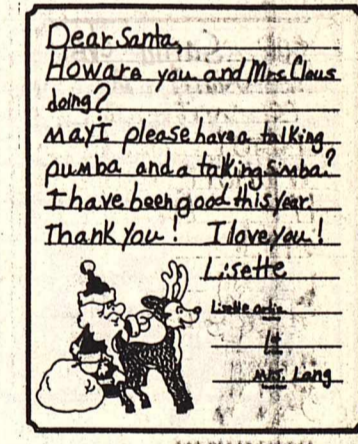 Dear Santa,
How are you and Mrs Claus
doing?
may I please have a talking
pumba and a talking simba?
I have been good this year.
Thank you! I love you!
Lisette
Lisette
1st
Mrs. Lang